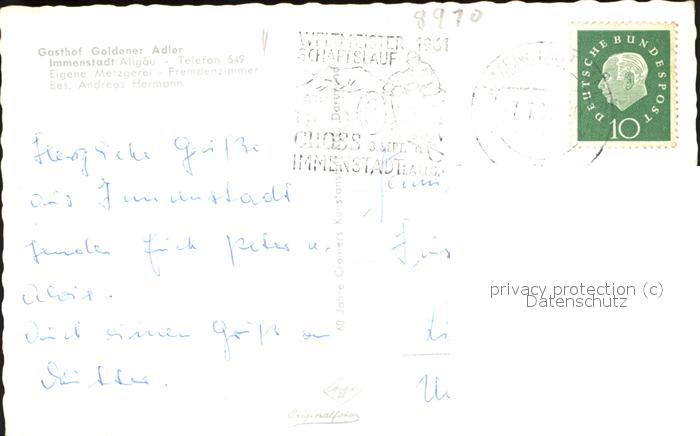 8970
Gasthof Goldener Adler
Immenstadt Allgäu - Telefon 549
Eigene Metzgerei - Fremdenzimmer
Bes. Andreas Hermann
WELTMEISTER 1961
SCHAFTSLAUF
CROSS 3.SEPT.
IMMENSTADT
DEUTSCHE BUNDESPOST
10
Herzliche Grüße
aus Immenstadt
senden Euch Peter u.
Alois.
Auch einen Gruß an
60 Jahre Cramers Kunstanstalt
Dortmund
privacy protection (c)
Datenschutz
Agfa
Originalfoto